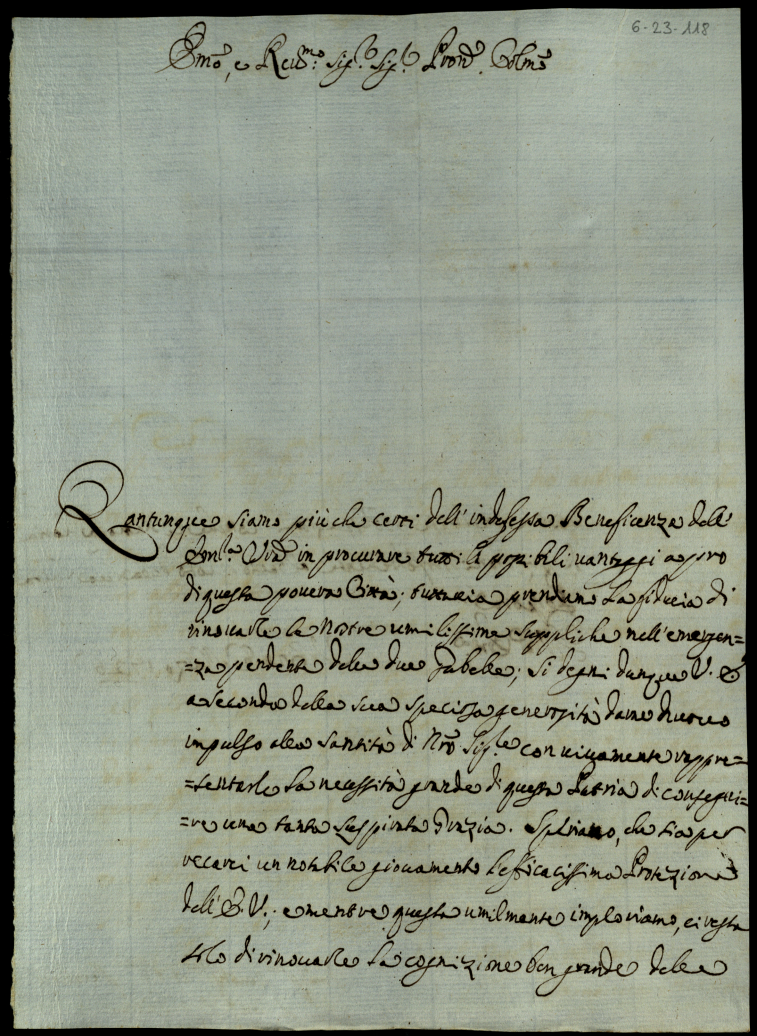 6-23-118
Em.o, e Reu.mo Sig.r Sig.r Pron.e Colmo
Quantunque siamo più che certi dell' indefessa Beneficenza dell'
Em.za Vra in procurare tutti li possibili vantaggi a pro
di questa povera Città; tuttavia prendiamo la fiducia di
rinovarle le Nostre umilissime suppliche nell' emergen=
=za pendente delle due Gabelle; si degni dunque V. E.
a seconda della sua speciosa generosità darne nuovo
impulso alla Santità di Nro Sig.re con vivamente rappre=
=sentarle la necessità grande di questa Patria di consegui=
=re una tanta suspirata Grazia. Speriamo, che sia per
recarci un notabile giovamento l'efficacissima Protezione
dell' E. V.; e mentre questa umilmente imploriamo, ci resta
solo di rinovarle la cognizione ben grande delle